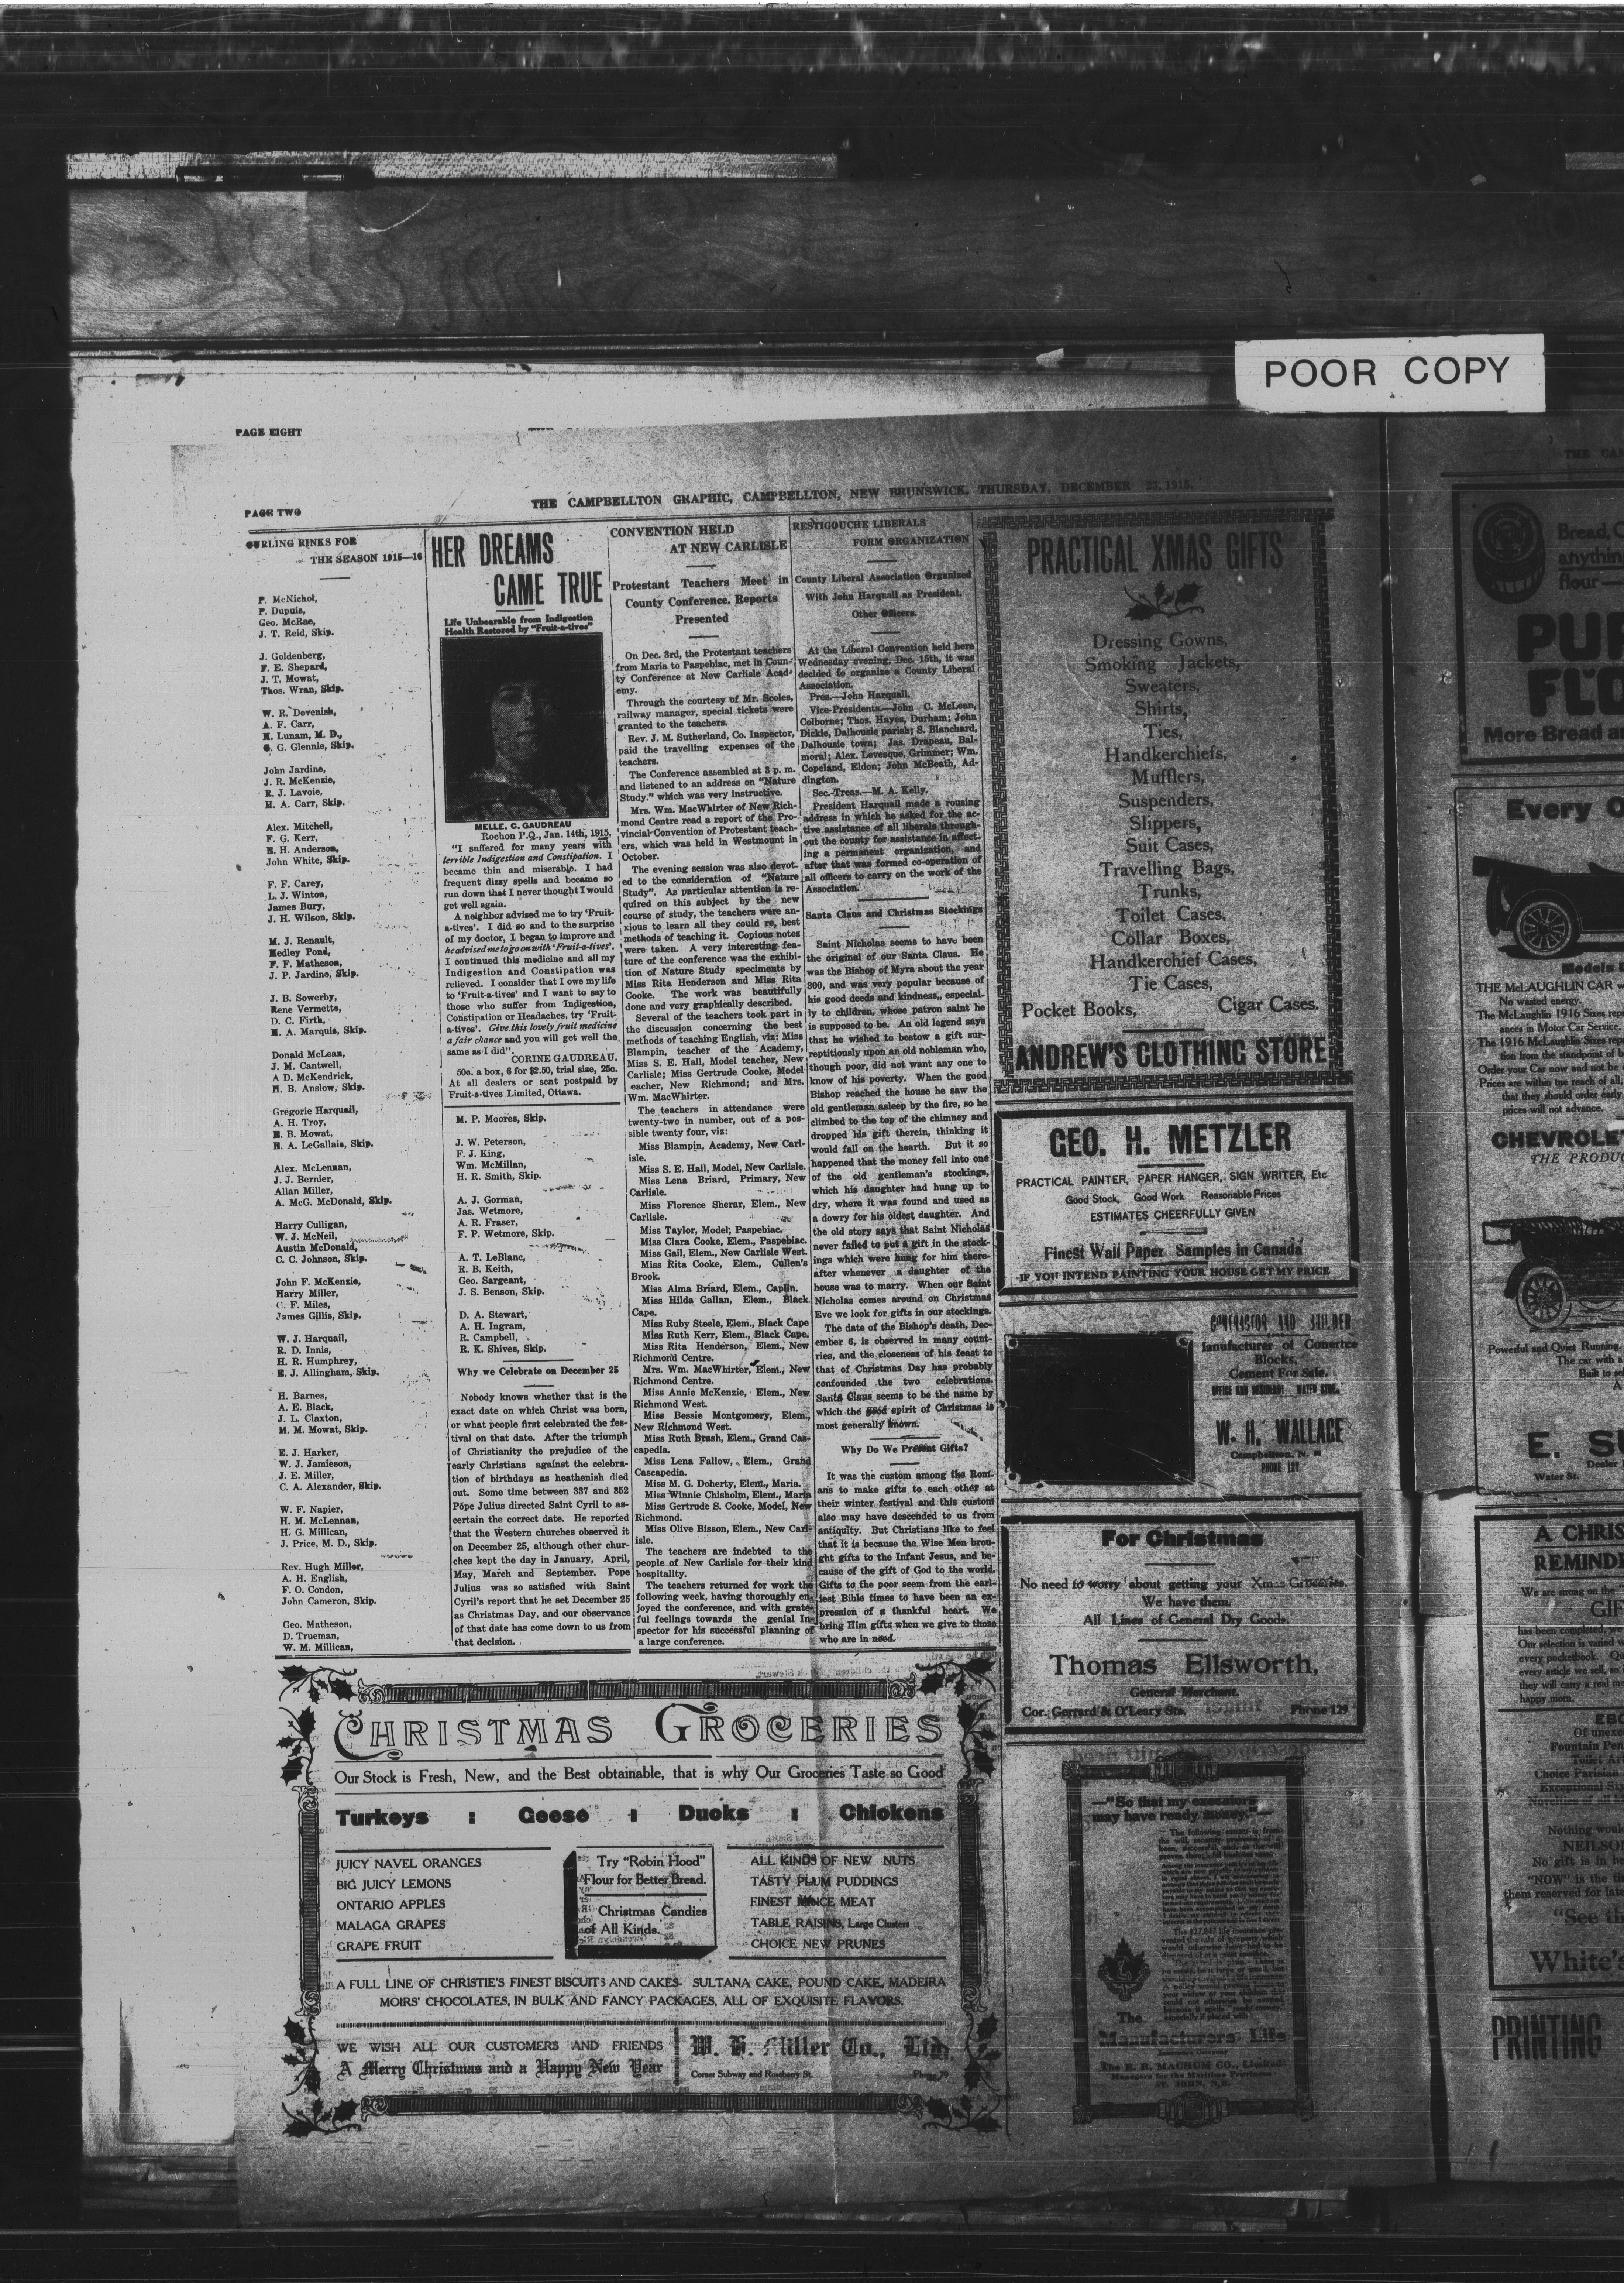 POOR COPY
PAGE EIGHT
PAGE TWO
THE CAMPBELLTON GRAPHIC, CAMPBELLTON, NEW BRUNSWICK, THURSDAY, DECEMBER 23, 1915.
CURLING RINKS FOR
THE SEASON 1915—16
P. McNichol,
P. Dupuis,
Geo. McRae,
J. T. Reid, Skip.
J. Goldenberg,
F. E. Shepard,
J. T. Mowat,
Thos. Wran, Skip.
W. R. Devenish,
A. F. Carr,
H. Lunam, M. D.,
G. G. Glennie, Skip.
John Jardine,
J. R. McKenzie,
R. J. Lavoie,
H. A. Carr, Skip.
Alex. Mitchell,
F. G. Kerr,
H. H. Anderson,
John White, Skip.
F. F. Carey,
L. J. Winton,
James Bury,
J. H. Wilson, Skip.
M. J. Renault,
Hedley Pond,
F. F. Matheson,
J. P. Jardine, Skip.
J. B. Sowerby,
Rene Vermette,
D. C. Firth,
M. A. Marquis, Skip.
Donald McLean,
J. M. Cantwell,
A D. McKendrick,
H. B. Anslow, Skip.
Gregorie Harquail,
A. H. Troy,
H. B. Mowat,
H. A. LeGallais, Skip.
Alex. McLennan,
J. J. Bernier,
Allan Miller,
A. McG. McDonald, Skip.
Harry Culligan,
W. J. McNeil,
Austin McDonald,
C. C. Johnson, Skip.
John F. McKenzie,
Harry Miller,
C. F. Miles,
James Gillis, Skip.
W. J. Harquail,
R. D. Innis,
H. R. Humphrey,
E. J. Allingham, Skip.
H. Barnes,
A. E. Black,
J. L. Claxton,
M. M. Mowat, Skip.
E. J. Harker,
W. J. Jamieson,
J. E. Miller,
C. A. Alexander, Skip.
W. F. Napier,
H. M. McLennan,
H. G. Millican,
J. Price, M. D., Skip.
Rev. Hugh Miller,
A. H. English,
F. O. Condon,
John Cameron, Skip.
Geo. Matheson,
D. Trueman,
W. M. Millican,
HER DREAMS
CAME TRUE
Life Unbearable from Indigestion
Health Restored by "Fruit-a-tives"
MELLE. C. GAUDREAU
Rochon P.Q., Jan. 14th, 1915.
"I suffered for many years with
terrible Indigestion and Constipation. I
became thin and miserable. I had
frequent dizzy spells and became so
run down that I never thought I would
get well again.
A neighbor advised me to try 'Fruit-
a-tives'. I did so and to the surprise
of my doctor, I began to improve and
he advised me to go on with 'Fruit-a-tives'.
I continued this medicine and all my
Indigestion and Constipation was
relieved. I consider that I owe my life
to 'Fruit-a-tives' and I want to say to
those who suffer from Indigestion,
Constipation or Headaches, try 'Fruit-
a-tives'. Give this lovely fruit medicine
a fair chance and you will get well the
same as I did".
CORINE GAUDREAU.
50c. a box, 6 for $2.50, trial size, 25c.
At all dealers or sent postpaid by
Fruit-a-tives Limited, Ottawa.
M. P. Moores, Skip.
J. W. Peterson,
F. J. King,
Wm. McMillan,
H. R. Smith, Skip.
A. J. Gorman,
Jas. Wetmore,
A. R. Fraser,
F. P. Wetmore, Skip.
A. T. LeBlanc,
R. B. Keith,
Geo. Sargeant,
J. S. Benson, Skip.
D. A. Stewart,
A. H. Ingram,
R. Campbell,
R. K. Shives, Skip.
Why we Celebrate on December 25
Nobody knows whether that is the
exact date on which Christ was born,
or what people first celebrated the fes-
tival on that date. After the triumph
of Christianity the prejudice of the
early Christians against the celebra-
tion of birthdays as heathenish died
out. Some time between 337 and 352
Pope Julius directed Saint Cyril to as-
certain the correct date. He reported
that the Western churches observed it
on December 25, although other chur-
ches kept the day in January, April,
May, March and September. Pope
Julius was so satisfied with Saint
Cyril's report that he set December 25
as Christmas Day, and our observance
of that date has come down to us from
that decision.
CONVENTION HELD
AT NEW CARLISLE
Protestant Teachers Meet in
County Conference. Reports
Presented
On Dec. 3rd, the Protestant teachers
from Maria to Paspebiac, met in Coun-
ty Conference at New Carlisle Acad-
emy.
Through the courtesy of Mr. Scoles,
railway manager, special tickets were
granted to the teachers.
Rev. J. M. Sutherland, Co. Inspector,
paid the travelling expenses of the
teachers.
The Conference assembled at 3 p. m.
and listened to an address on "Nature
Study." which was very instructive.
Mrs. Wm. MacWhirter of New Rich-
mond Centre read a report of the Pro-
vincial Convention of Protestant teach-
ers, which was held in Westmount in
October.
The evening session was also devot-
ed to the consideration of "Nature
Study". As particular attention is re-
quired on this subject by the new
course of study, the teachers were an-
xious to learn all they could re, best
methods of teaching it. Copious notes
were taken. A very interesting fea-
ture of the conference was the exhibi-
tion of Nature Study speciments by
Miss Rita Henderson and Miss Rita
Cooke. The work was beautifully
done and very graphically described.
Several of the teachers took part in
the discussion concerning the best
methods of teaching English, viz: Miss
Blampin, teacher of the Academy,
Miss S. E. Hall, Model teacher, New
Carlisle; Miss Gertrude Cooke, Model
eacher, New Richmond; and Mrs.
Wm. MacWhirter.
The teachers in attendance were
twenty-two in number, out of a pos-
sible twenty four, viz:
Miss Blampin, Academy, New Carl-
isle.
Miss S. E. Hall, Model, New Carlisle.
Miss Lena Briard, Primary, New
Carlisle.
Miss Florence Sherar, Elem., New
Carlisle.
Miss Taylor, Model, Paspebiac.
Miss Clara Cooke, Elem., Paspebiac.
Miss Gail, Elem., New Carlisle West.
Miss Rita Cooke, Elem., Cullen's
Brook.
Miss Alma Briard, Elem., Caplin.
Miss Hilda Gallan, Elem., Black
Cape.
Miss Ruby Steele, Elem., Black Cape
Miss Ruth Kerr, Elem., Black Cape.
Miss Rita Henderson, Elem., New
Richmond Centre.
Mrs. Wm. MacWhirter, Elem., New
Richmond Centre.
Miss Annie McKenzie, Elem., New
Richmond West.
Miss Bessie Montgomery, Elem.,
New Richmond West.
Miss Ruth Brash, Elem., Grand Cas-
capedia.
Miss Lena Fallow, Elem., Grand
Cascapedia.
Miss M. G. Doherty, Elem., Maria.
Miss Winnie Chisholm, Elem., Maria
Miss Gertrude S. Cooke, Model, New
Richmond.
Miss Olive Bisson, Elem., New Carl-
isle.
The teachers are indebted to the
people of New Carlisle for their kind
hospitality.
The teachers returned for work the
following week, having thoroughly en-
joyed the conference, and with grate-
ful feelings towards the genial In-
spector for his successful planning of
a large conference.
RESTIGOUCHE LIBERALS
FORM ORGANIZATION
County Liberal Association Organized
With John Harquail as President.
Other Officers.
At the Liberal Convention held here
Wednesday evening, Dec. 15th, it was
decided to organize a County Liberal
Association.
Pres.—John Harquail,
Vice-Presidents.—John C. McLean,
Colborne; Thos. Hayes, Durham; John
Dickie, Dalhousie parish; S. Blanchard,
Dalhousie town; Jas. Drapeau, Bal-
moral; Alex. Levesque, Grimmer; Wm.
Copeland, Eldon; John McBeath, Ad-
dington.
Sec.-Treas.—M. A. Kelly.
President Harquail made a rousing
address in which he asked for the ac-
tive assistance of all liberals through-
out the county for assistance in affect-
ing a permanent organization, and
after that was formed co-operation of
all officers to carry on the work of the
Association.
Santa Claus and Christmas Stockings
Saint Nicholas seems to have been
the original of our Santa Claus. He
was the Bishop of Myra about the year
300, and was very popular because of
his good deeds and kindness,, especial-
ly to children, whose patron saint he
is supposed to be. An old legend says
that he wished to bestow a gift sur-
reptitiously upon an old nobleman who,
though poor, did not want any one to
know of his poverty. When the good
Bishop reached the house he saw the
old gentleman asleep by the fire, so he
climbed to the top of the chimney and
dropped his gift therein, thinking it
would fall on the hearth. But it so
happened that the money fell into one
of the old gentleman's stockings,
which his daughter had hung up to
dry, where it was found and used as
a dowry for his oldest daughter. And
the old story says that Saint Nicholas
never failed to put a gift in the stock-
ings which were hung for him there-
after whenever a daughter of the
house was to marry. When our Saint
Nicholas comes around on Christmas
Eve we look for gifts in our stockings.
The date of the Bishop's death, Dec-
ember 6, is observed in many count-
ries, and the closeness of his feast to
that of Christmas Day has probably
confounded the two celebrations.
Santa Claus seems to be the name by
which the good spirit of Christmas is
most generally known.
Why Do We Present Gifts?
It was the custom among the Rom-
ans to make gifts to each other at
their winter festival and this custom
also may have descended to us from
antiquity. But Christians like to feel
that it is because the Wise Men brou-
ght gifts to the Infant Jesus, and be-
cause of the gift of God to the world.
Gifts to the poor seem from the earl-
iest Bible times to have been an ex-
pression of a thankful heart. We
bring Him gifts when we give to those
who are in need.
PRACTICAL XMAS GIFTS
Dressing Gowns,
Smoking Jackets,
Sweaters,
Shirts,
Ties,
Handkerchiefs,
Mufflers,
Suspenders,
Slippers,
Suit Cases,
Travelling Bags,
Trunks,
Toilet Cases,
Collar Boxes,
Handkerchief Cases,
Tie Cases,
Pocket Books, Cigar Cases.
ANDREW'S CLOTHING STORE
GEO. H. METZLER
PRACTICAL PAINTER, PAPER HANGER, SIGN WRITER, Etc
Good Stock, Good Work Reasonable Prices
ESTIMATES CHEERFULLY GIVEN
Finest Wall Paper Samples in Canada
IF YOU INTEND PAINTING YOUR HOUSE GET MY PRICE
CONTRACTOR AND BUILDER
Manufacturer of Conertce
Blocks,
Cement For Sale.
OFFICE AND RESIDENCE WATER STRE.
W. H. WALLACE
Campbellton, N.
PHONE 127
For Christmas
No need to worry about getting your Xmas Groceries.
We have them.
All Lines of General Dry Goods.
Thomas Ellsworth,
General Merchant.
Cor. Gerrard & O'Leary Sts. Phone 129
—"So that my executors
may have ready money."—
The
Manufacturers Life
Insurance Company
The E. R. MACHUM CO., Limited
Managers for the Maritime Provinces
ST. JOHN, N.B.
CHRISTMAS GROCERIES
Our Stock is Fresh, New, and the Best obtainable, that is why Our Groceries Taste so Good
Turkeys : Geese : Ducks : Chickens
JUICY NAVEL ORANGES
BIG JUICY LEMONS
ONTARIO APPLES
MALAGA GRAPES
GRAPE FRUIT
Try "Robin Hood"
Flour for Better Bread.
Christmas Candies
of All Kinds.
ALL KINDS OF NEW NUTS
TASTY PLUM PUDDINGS
FINEST MINCE MEAT
TABLE RAISINS, Large Clusters
CHOICE NEW PRUNES
A FULL LINE OF CHRISTIE'S FINEST BISCUITS AND CAKES- SULTANA CAKE, POUND CAKE, MADEIRA
MOIRS' CHOCOLATES, IN BULK AND FANCY PACKAGES, ALL OF EXQUISITE FLAVORS.
WE WISH ALL OUR CUSTOMERS AND FRIENDS
A Merry Christmas and a Happy New Year
W. H. Miller Co., Ltd.
Corner Subway and Roseberry St. Phone 79
THE CAM
Bread, C
anythin
flour—
PUR
FLO
More Bread an
Every
Models
THE McLAUGHLIN CAR w
No wasted energy.
The McLaughlin 1916 Sixes repr
ances in Motor Car Service
The 1916 McLaughlin Sixes repr
tion from the standpoint of b
Order your Car now and not be
Prices are within the reach of all
that they should order early
prices will not advance.
CHEVROLET
THE PRODUC
Powerful and Quiet Running.
The car with a
Built to se
E. S
Water St. Dealer
A CHRIS
REMINDE
We are strong on the
GIF
has been completed, we
Our selection is varied
every pocketbook. Qu
every article we sell, so
they will carry a real me
happy morn.
EBO
Of unexc
Fountain Pen
Toilet Ar
Choice Parisian
Exceptional S
Novelties of all k
Nothing would
NEILSO
No gift is in be
"NOW" is the tim
them reserved for late
"See th
White's
PRINTING